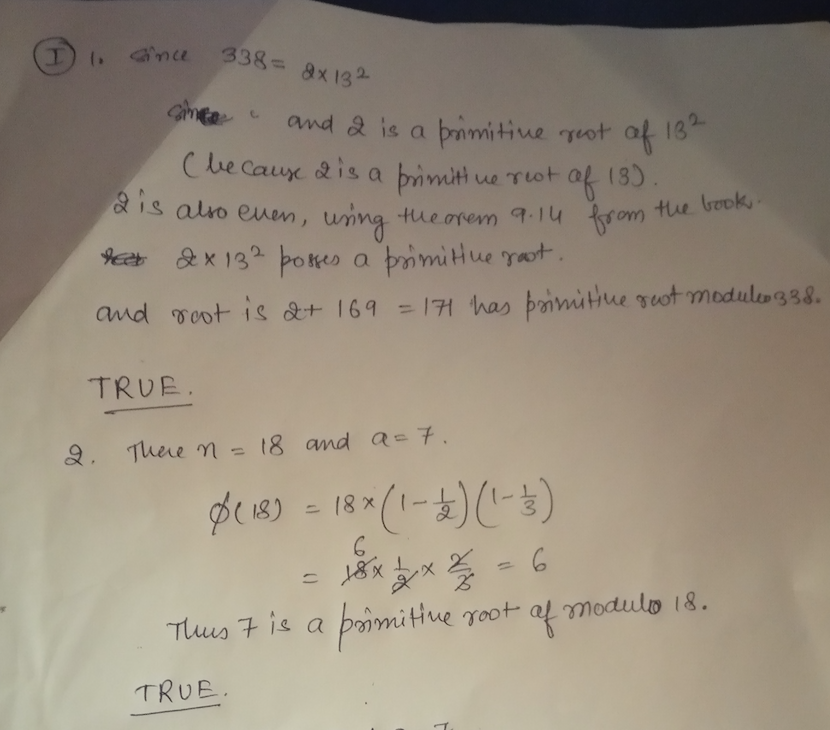 I 1. Since 338 = 2×13²
Since and 2 is a primitive root of 13²
(because 2 is a primitive root of 13).
2 is also even, using theorem 9.14 from the book.
2×13² posses a primitive root.
and root is 2+ 169 = 171 has primitive root modulo 338.
TRUE.
2. There n = 18 and a = 7.
ϕ(18) = 18 × (1 - 1/2) (1 - 1/3)
= 18 6 × 1/2 × 2/3 = 6
Thus 7 is a primitive root of modulo 18.
TRUE.